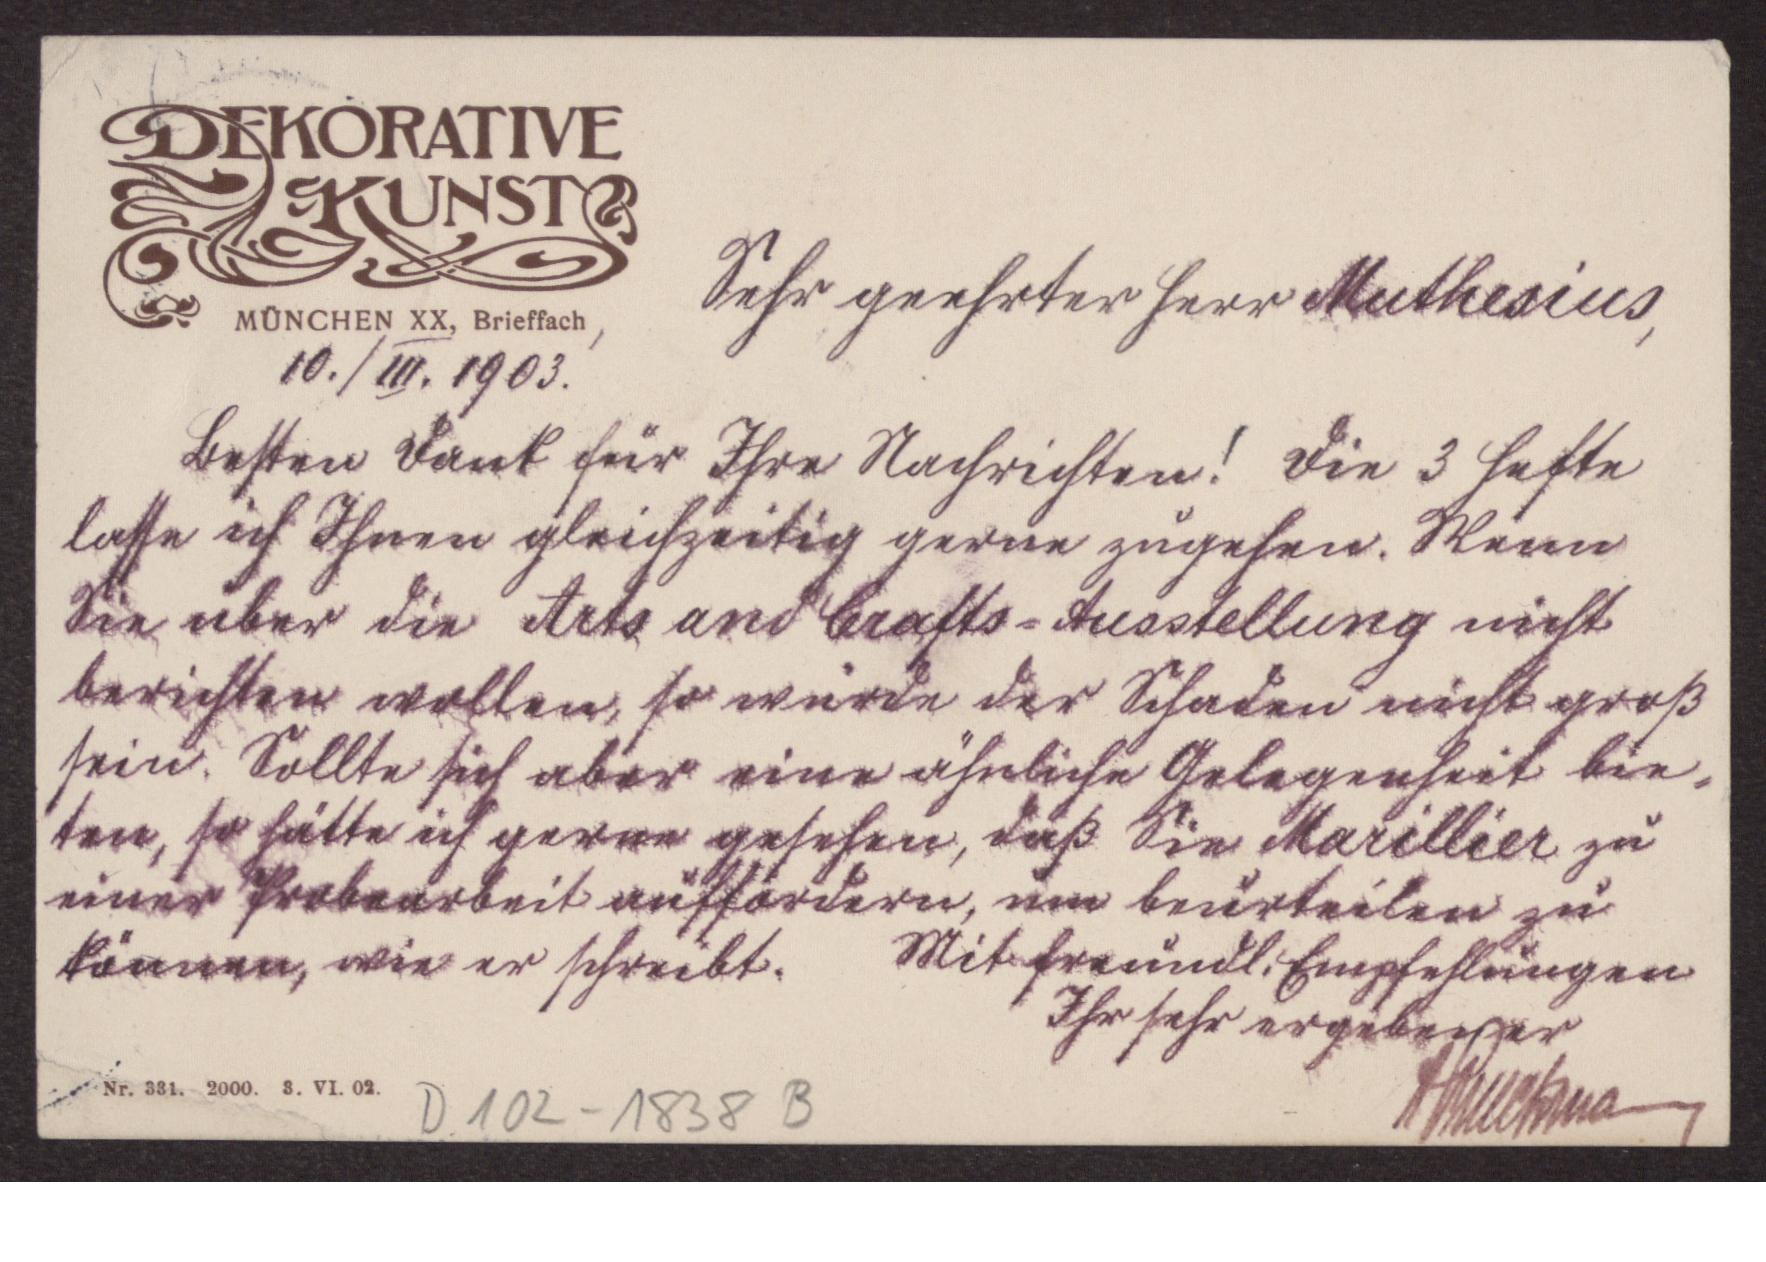 DEKORATIVE
KUNST
MÜNCHEN XX, Brieffach,
10./III. 1903.
Sehr geehrter Herr Muthesius,
Besten Dank für Ihre Nachrichten! Die 3 Hefte
lasse ich Ihnen gleichzeitig gerne zugehen. Wenn
Sie über die Arts and Crafts-Ausstellung nicht
berichten wollen, so würde der Schaden nicht groß
sein. Sollte sich aber eine ähnliche Gelegenheit bie-
ten, so hätte ich gerne gesehen, daß Sie Marillier zu
einer Probearbeit auffordern, um beurteilen zu
können, wie er schreibt. Mit freundl. Empfehlungen
Ihr sehr ergebener
Nr. 331. 2000. 3. VI. 02.
D 102-1838 B